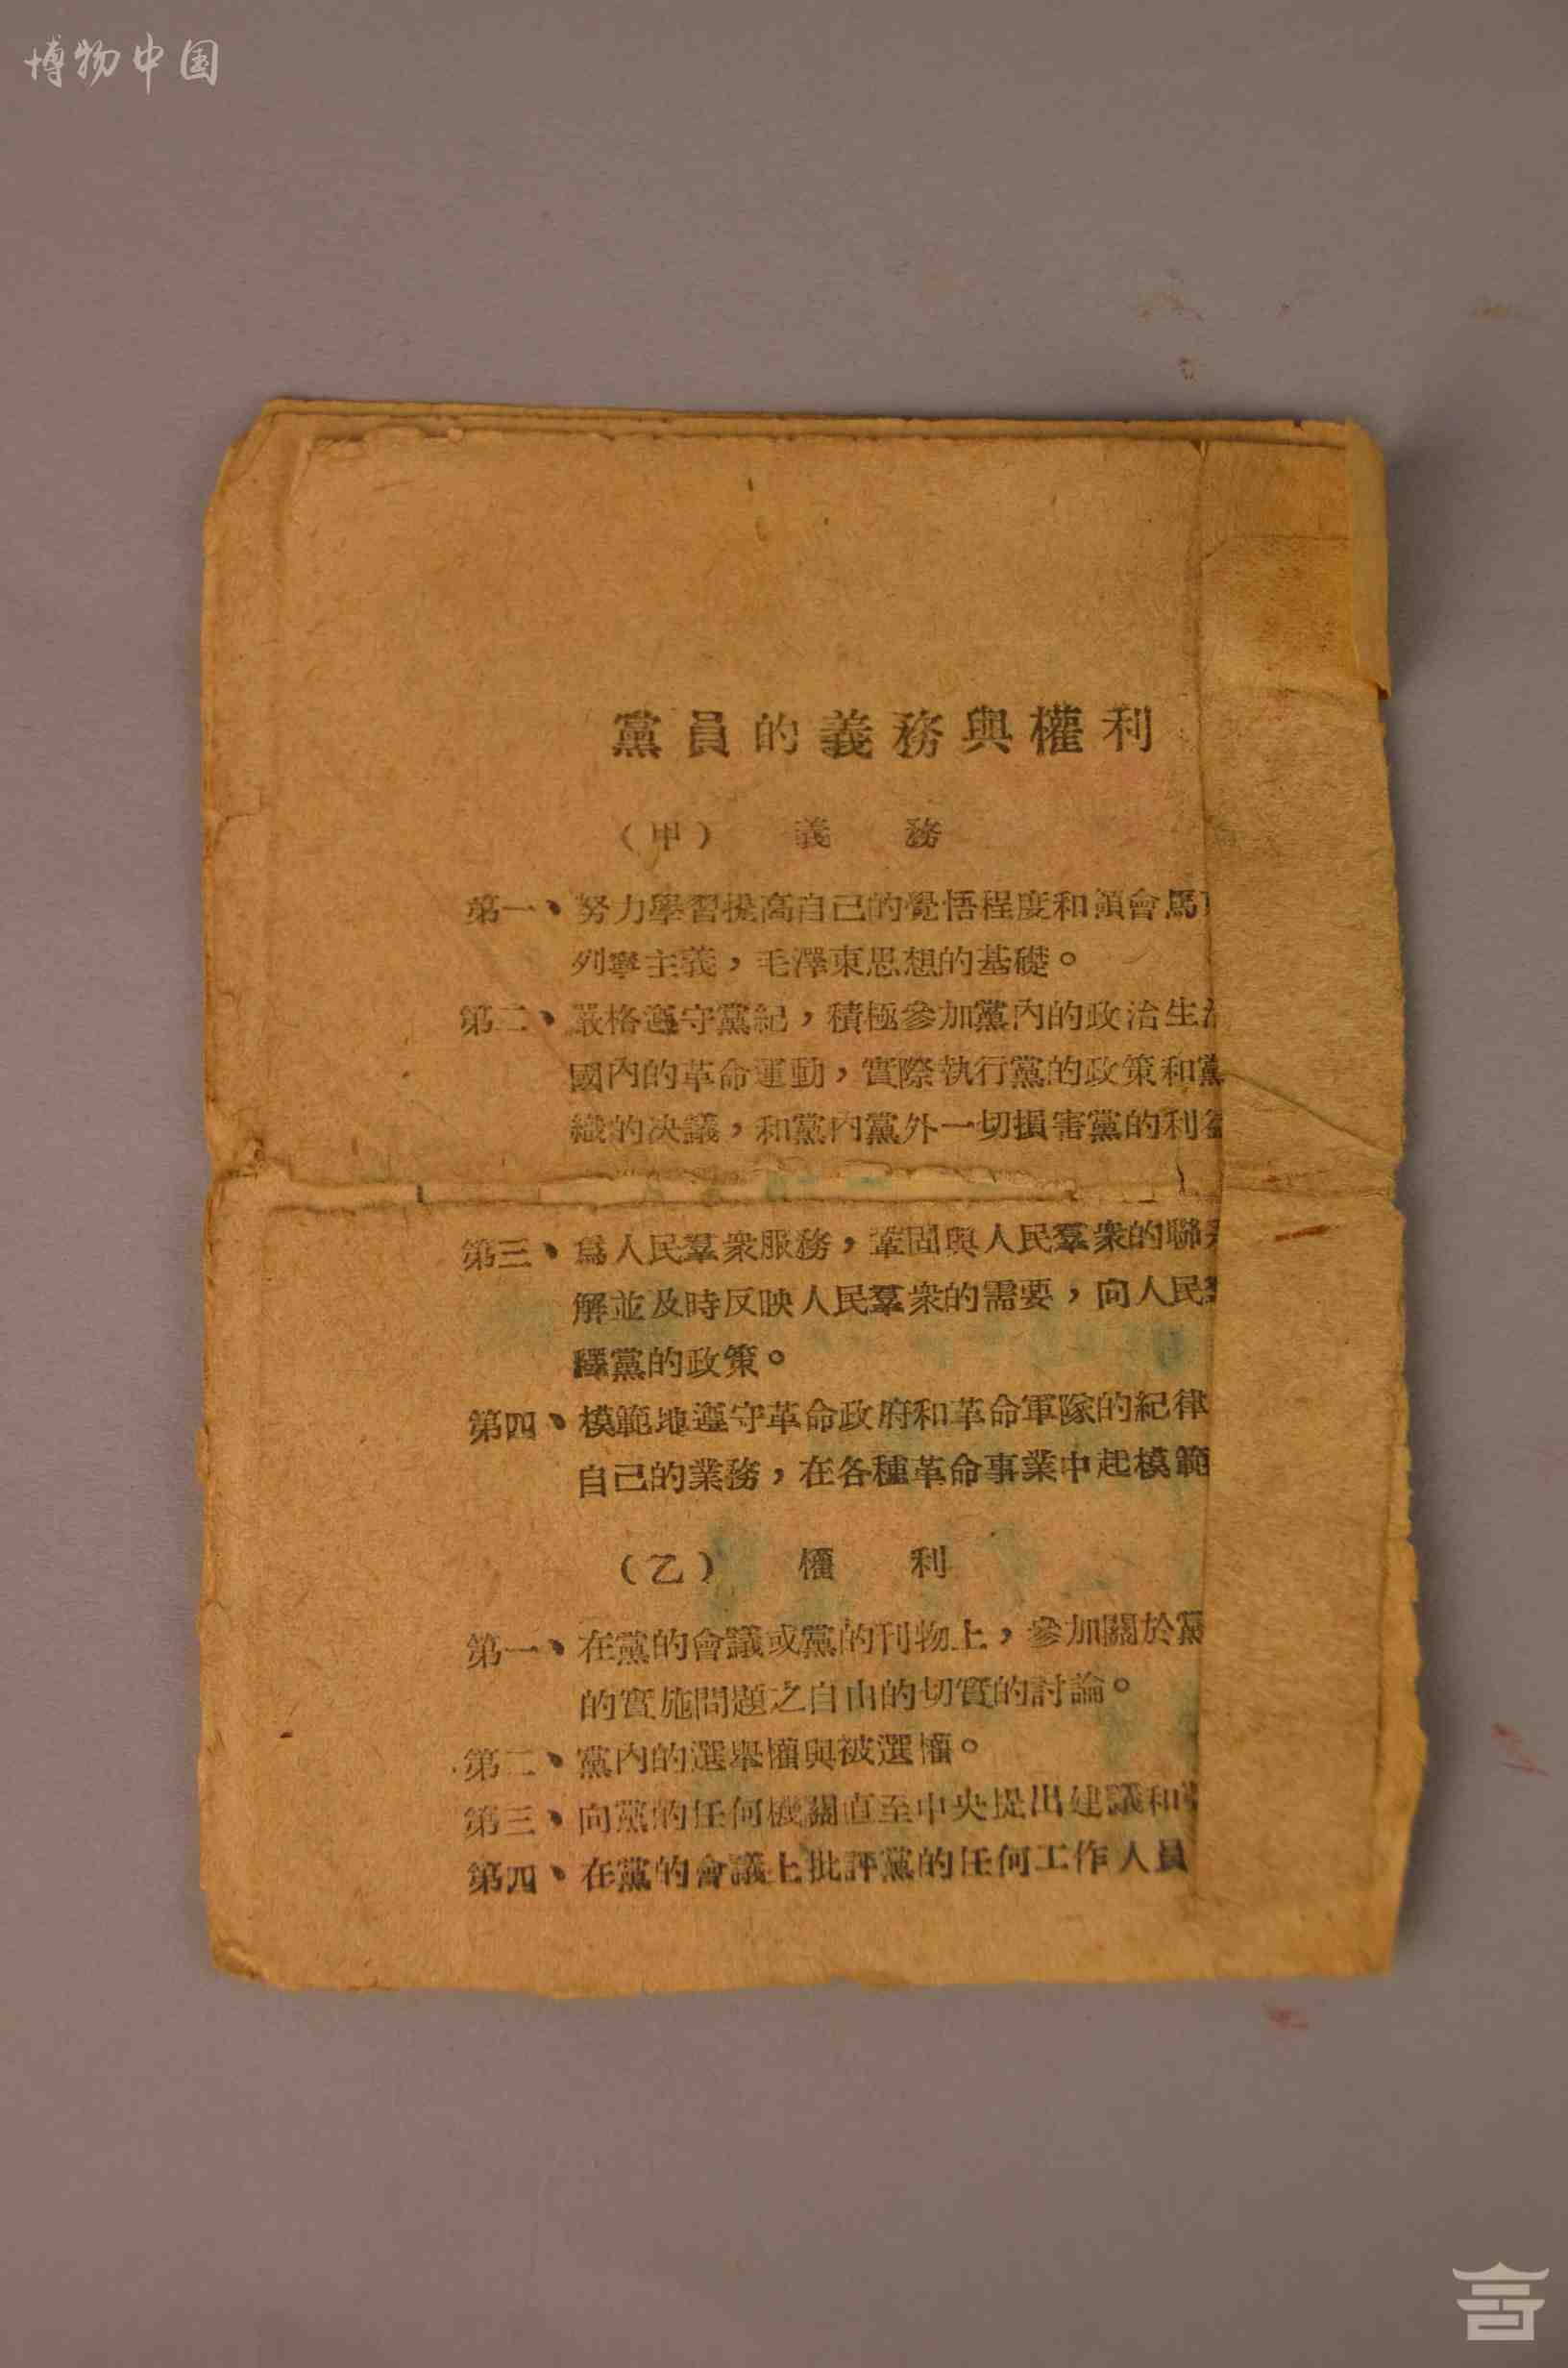 博物中国
黨員的義務與權利
（甲）　義　務
第一、努力學習提高自己的覺悟程度和領會馬
列寧主義，毛澤東思想的基礎。
第二、嚴格遵守黨紀，積極參加黨內的政治生
國內的革命運動，實際執行黨的政策和黨
織的決議，和黨內黨外一切損害黨的利
第三、爲人民羣衆服務，鞏固與人民羣衆的聯
解並及時反映人民羣衆的需要，向人民
釋黨的政策。
第四、模範地遵守革命政府和革命軍隊的紀律
自己的業務，在各種革命事業中起模範
（乙）　權　利
第一、在黨的會議或黨的刊物上，參加關於黨
的實施問題之自由的切實的討論。
第二、黨內的選舉權與被選權。
第三、向黨的任何機關直至中央提出建議和
第四、在黨的會議上批評黨的任何工作人員